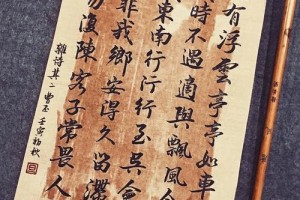 有浮雲亭亭如車
時不遇適與飄風會
東南行行行至吳會
非我鄉安得久留滯
勿復陳客子常畏人
雜詩其二 曹丕 壬寅初秋